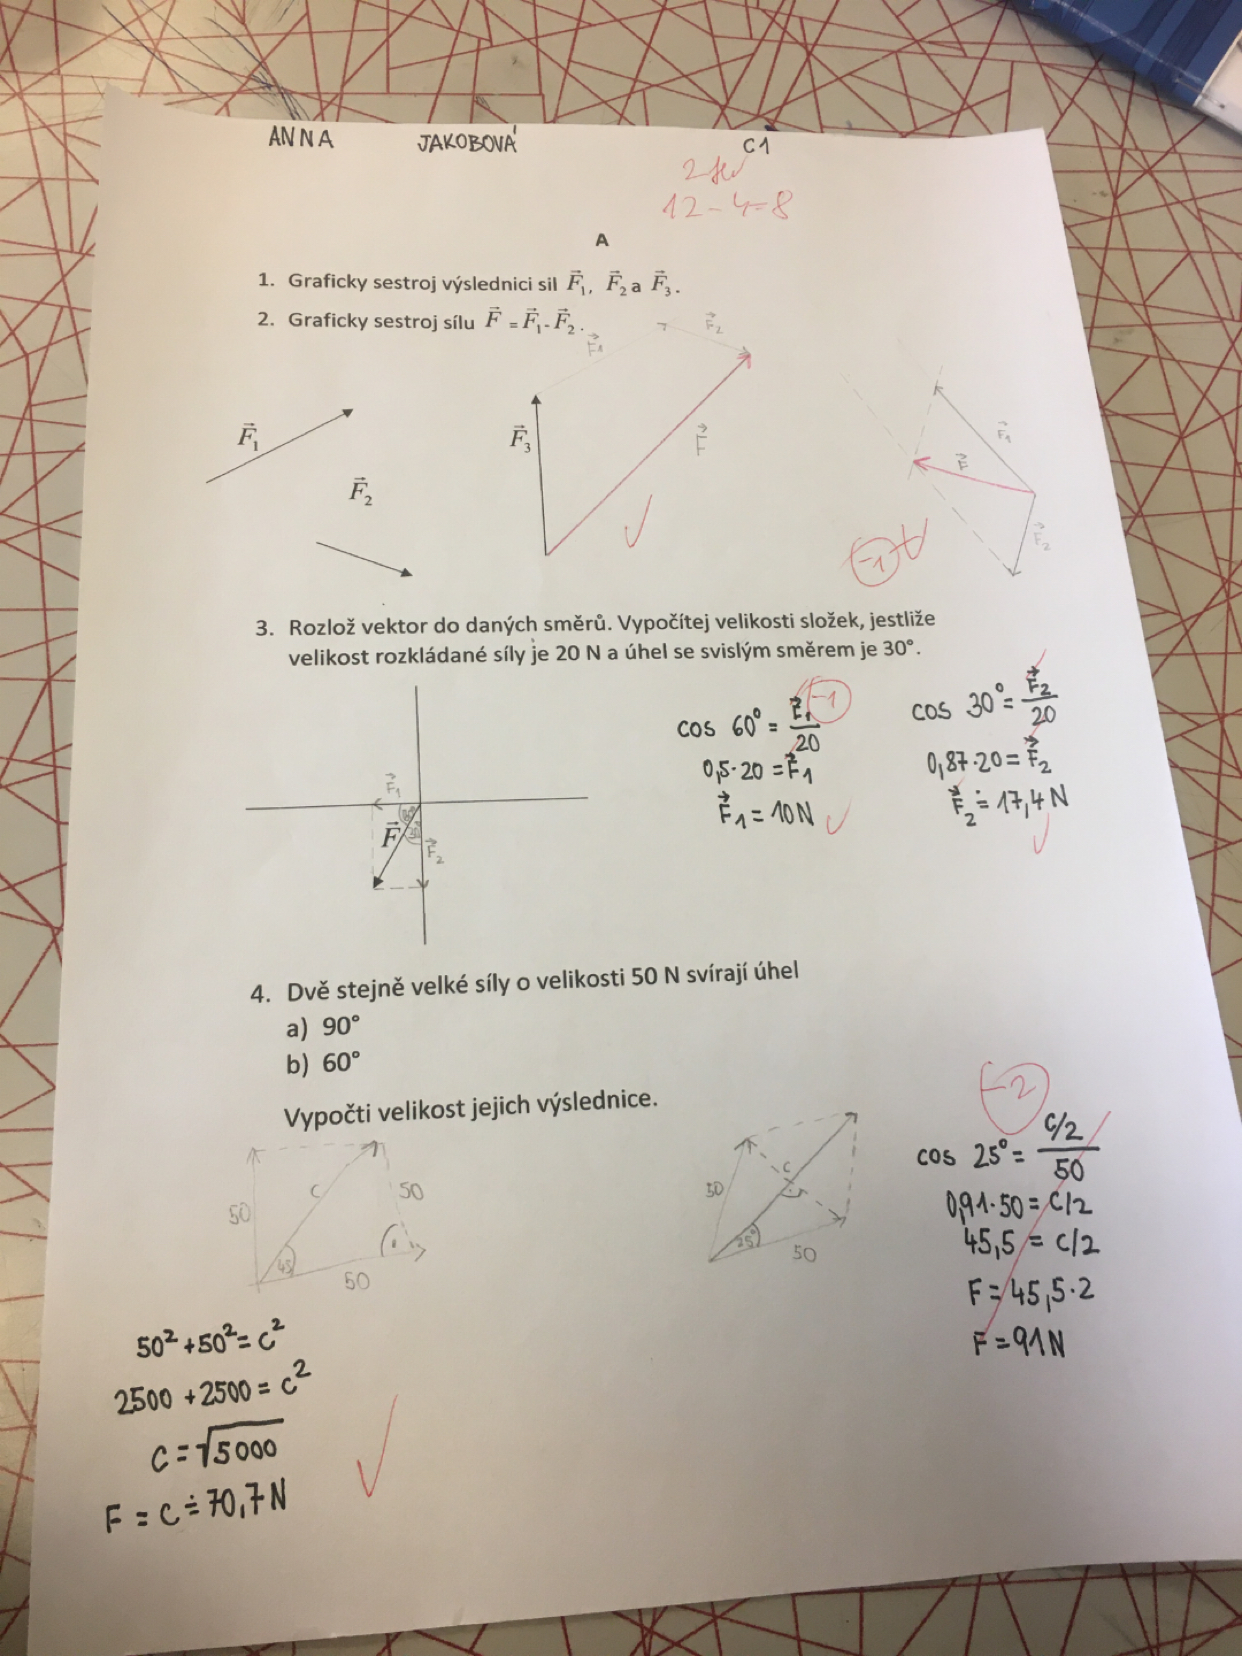 ANNA JAKOBOVÁ C1
12-4=8
A
1. Graficky sestroj výslednici sil F⃗₁, F⃗₂ a F⃗₃.
2. Graficky sestroj sílu F⃗ = F⃗₁ - F⃗₂.
F⃗₁ F⃗₂
F⃗₁
F⃗₂
F⃗₃
F⃗
F⃗₁
F⃗
F⃗₂
-1
3. Rozlož vektor do daných směrů. Vypočítej velikosti složek, jestliže
velikost rozkládané síly je 20 N a úhel se svislým směrem je 30°.
F⃗₁
F⃗
60°
30°
F⃗₂
-1
cos 60° = F⃗₁/20
0,5·20 = F⃗₁
F⃗₁ = 10N
cos 30° = F⃗₂/20
0,87·20 = F⃗₂
F⃗₂ ≐ 17,4 N
4. Dvě stejně velké síly o velikosti 50 N svírají úhel
a) 90°
b) 60°
Vypočti velikost jejich výslednice.
50
c
50
45
50
50² + 50² = c²
2500 + 2500 = c²
c = √5000
F = c ≐ 70,7 N
50
c
25°
50
-2
cos 25° = c/2/50
0,91·50 = c/2
45,5 = c/2
F = 45,5·2
F = 91N